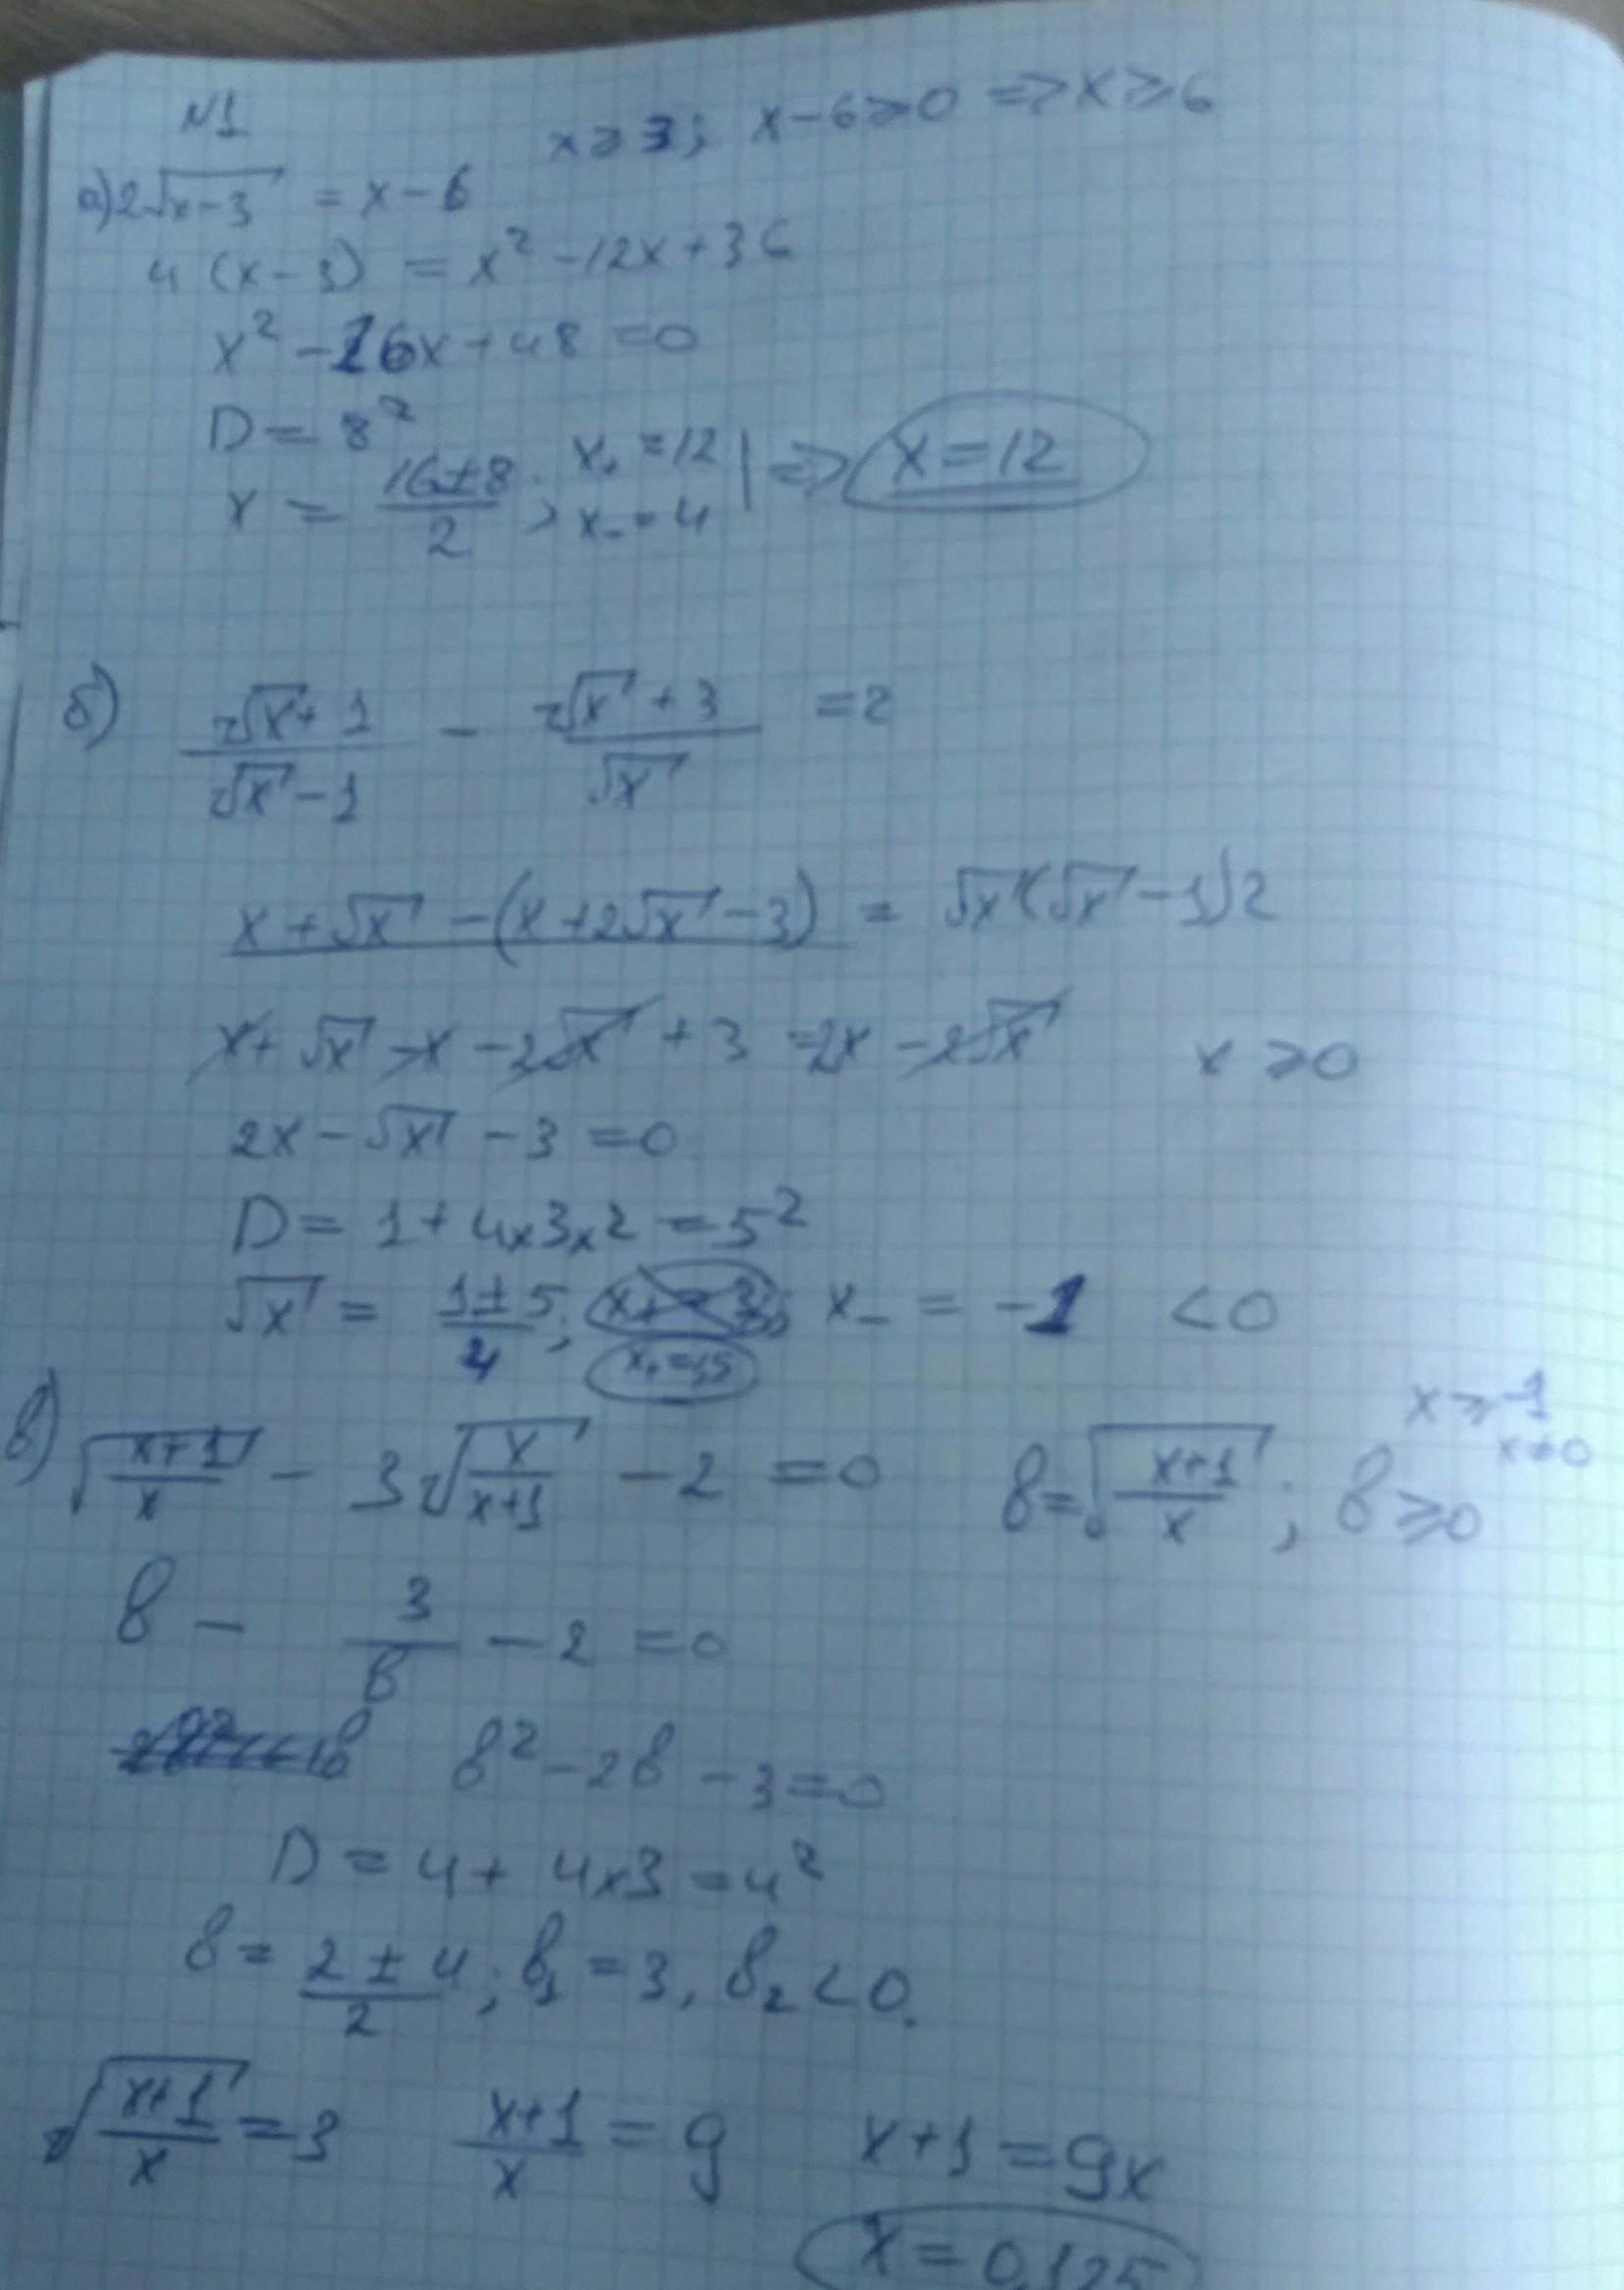 N1
x ⩾ 3; x−6⩾0 => x ⩾ 6
а) 2√(x−3) = x−6
4(x−3) = x² −12x+36
x² −16x+48=0
D = 8²
x = (16±8)/2 ; x₊ =12 x₋ = 4 | => x=12
б) (√x+1)/(√x−1) − (√x+3)/√x =2
x+√x −(x+2√x −3) = √x(√x −1)2
x+√x −x −2√x +3 =2x −2√x x ⩾0
2x−√x −3 =0
D= 1+4×3×2 =5²
√x = (1±5)/4; x₊=1,5 x₋ = −1 <0
в) √((x+1)/x) − 3√(x/(x+1)) −2 =0 в=√((x+1)/x); в⩾0 x ⩾ −1 x≠0
в − 3/в −2 =0
в²−2в −3=0
D = 4+ 4×3 =4²
в= (2±4)/2; в₁ =3, в₂ <0.
√((x+1)/x) =3 (x+1)/x = 9 x+1 =9x
x=0,125